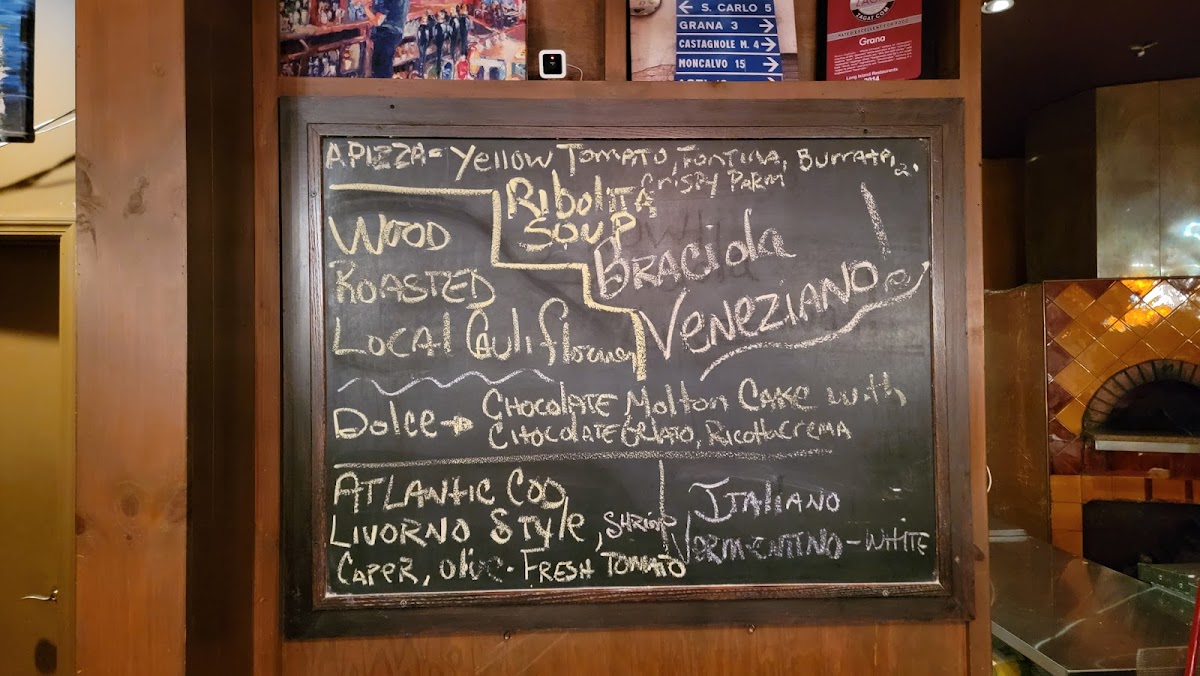 ← S. CARLO 5
GRANA 3 →
CASTAGNOLE M. 4 →
MONCALVO 15 →
ZAGAT.COM
RATED EXCELLENT FOR FOOD
Grana
Long Island Restaurants
2014
APIZZA = Yellow Tomato, Fontina, Burrata,
Crispy Parm
Ribolita
Soup
Wood
Roasted
Local Cauliflower
Braciola
Veneziano
Dolce → Chocolate Molton Cake with
Chocolate Gelato, Ricotta Crema
Atlantic Cod
Livorno Style, Shrimp
Caper, olive. Fresh Tomato
Italiano
Vermentino - White